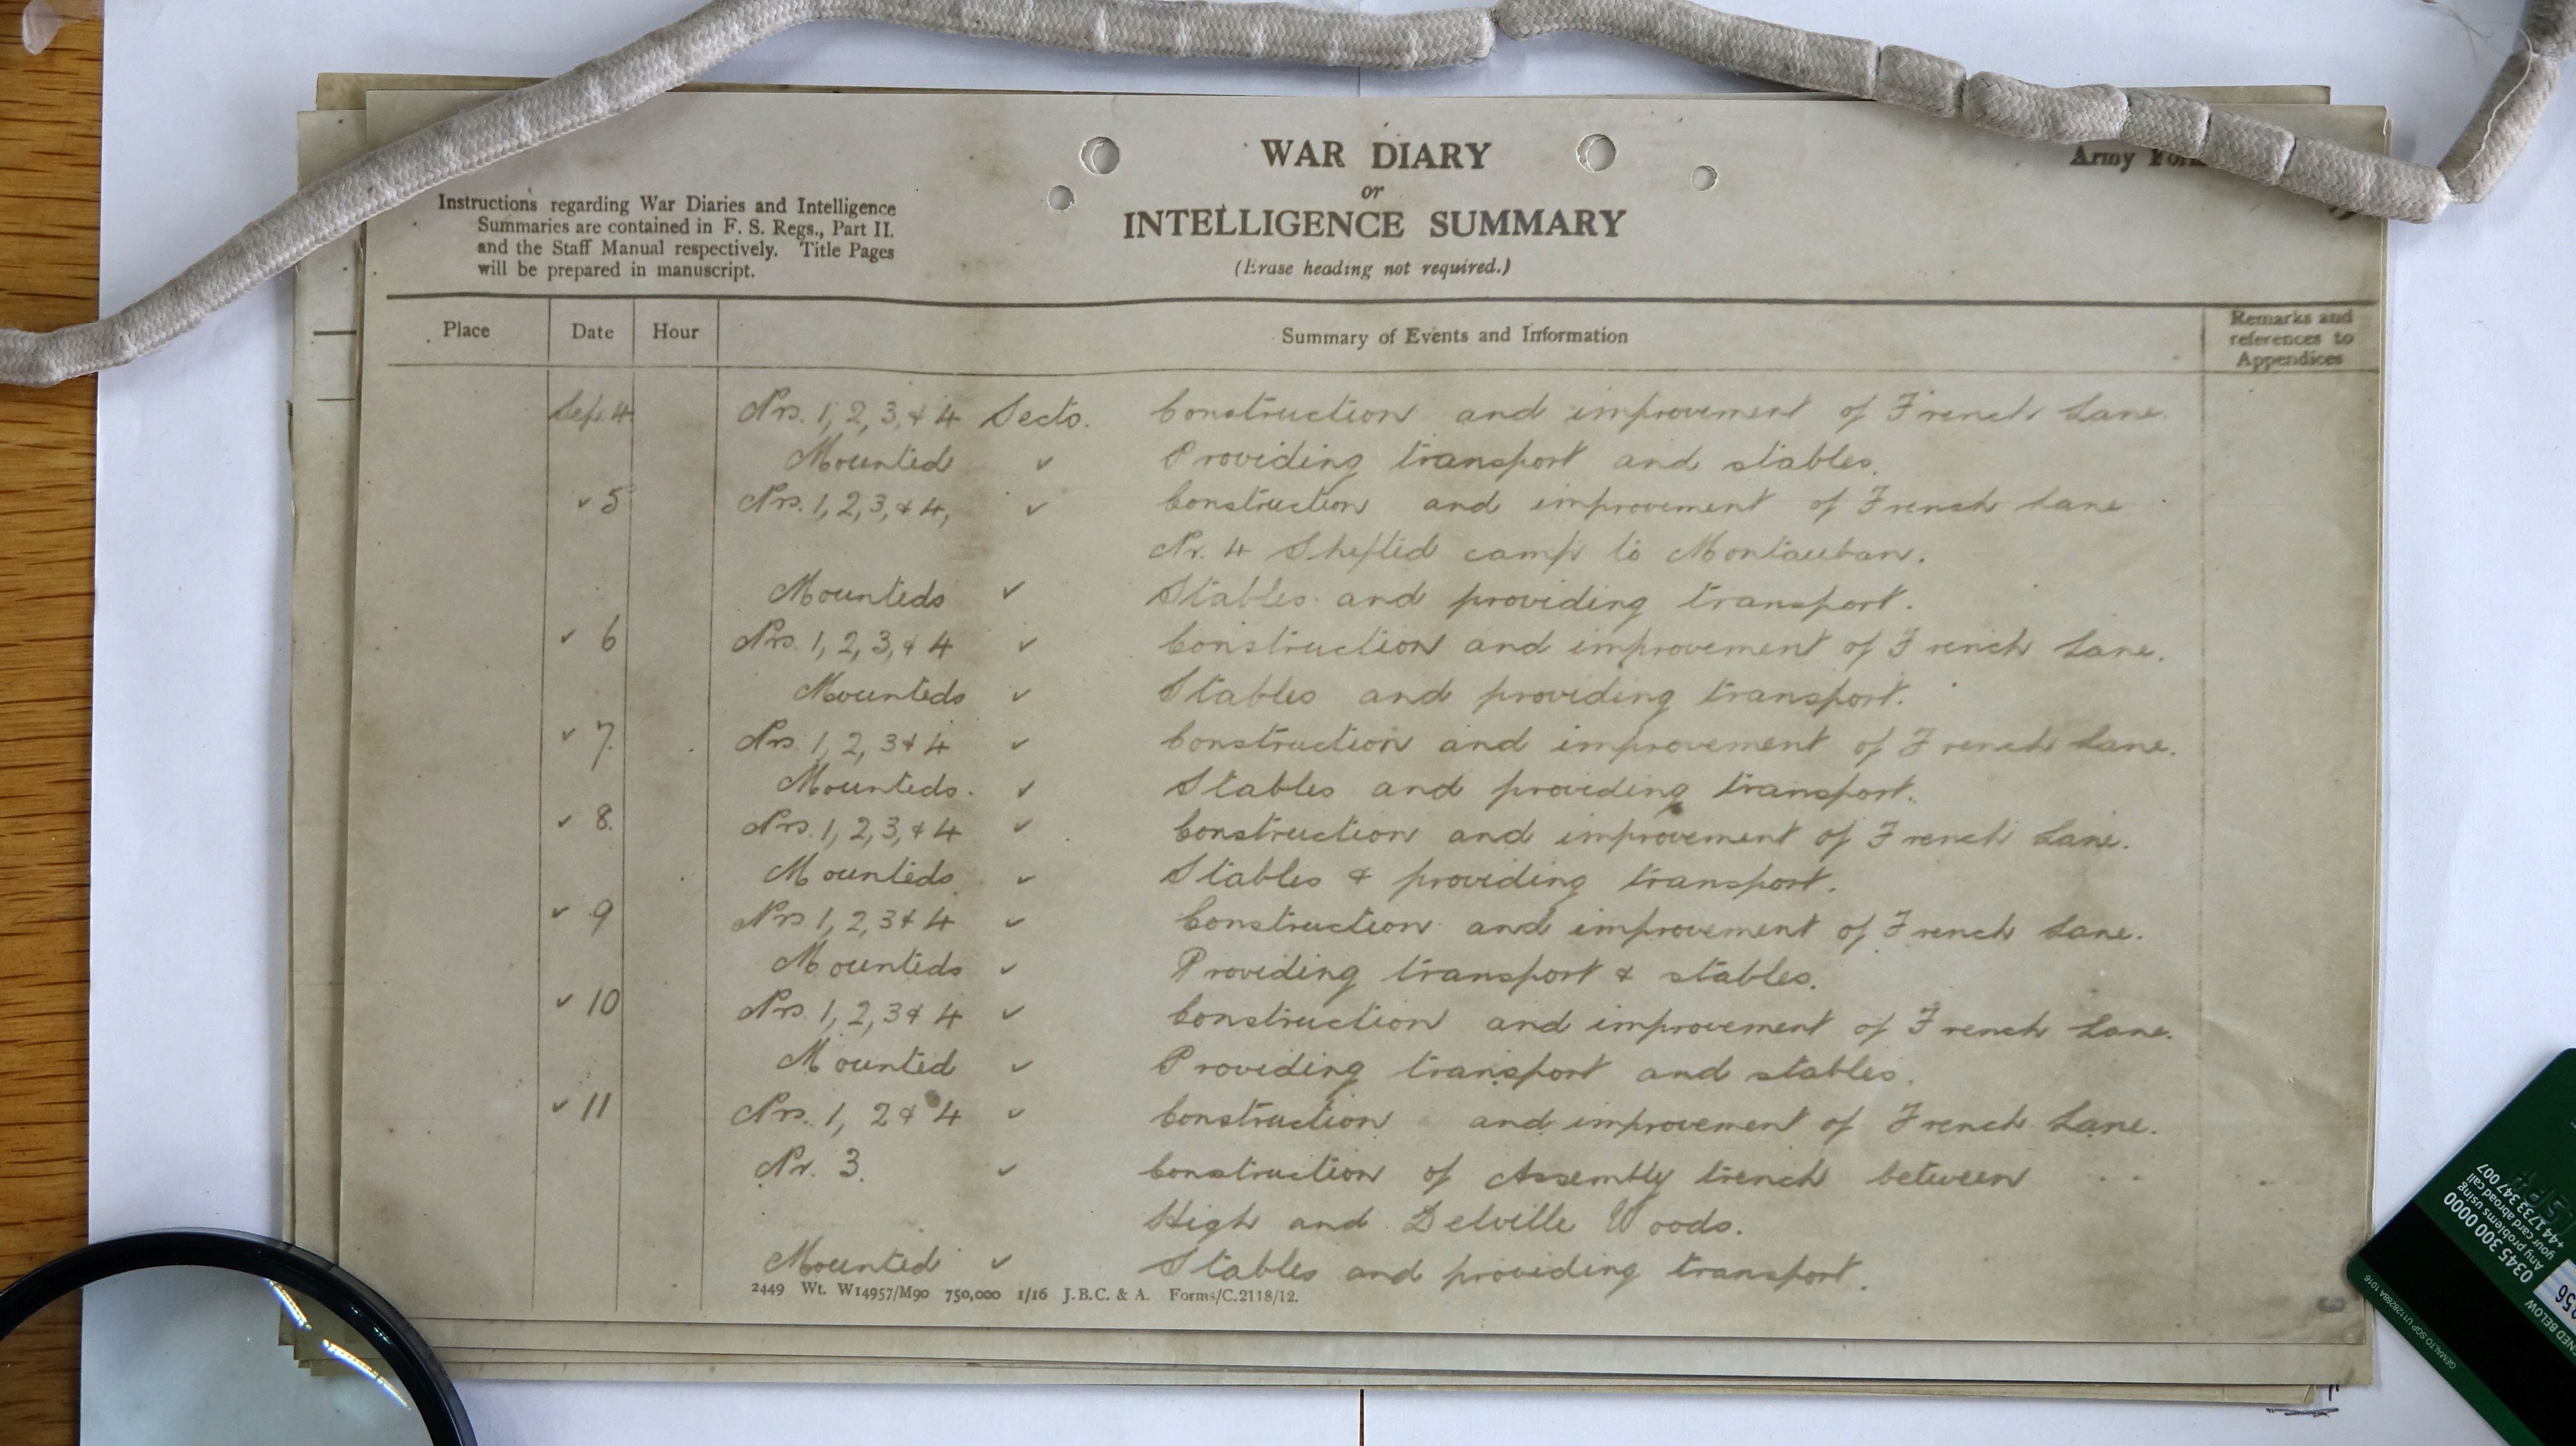 WAR DIARY
or
INTELLIGENCE SUMMARY
(Erase heading not required.)
Army
Instructions regarding War Diaries and Intelligence
Summaries are contained in F. S. Regs., Part II.
and the Staff Manual respectively. Title Pages
will be prepared in manuscript.
Place Date Hour Summary of Events and Information Remarks and references to Appendices
Sep. 4 Nrs. 1, 2, 3, & 4 Sects. Construction and improvement of French Lane.
Mounted ✓ Providing transport and stables.
✓ 5 Nrs. 1, 2, 3, & 4, ✓ Construction and improvement of French Lane
Nr. 4 Shifted camp to Montauban.
Mounteds ✓ Stables and providing transport.
✓ 6 Nrs. 1, 2, 3, & 4 ✓ Construction and improvement of French Lane.
Mounteds ✓ Stables and providing transport.
✓ 7. Nrs. 1, 2, 3 & 4 ✓ Construction and improvement of French Lane.
Mounteds. ✓ Stables and providing transport.
✓ 8. Nrs. 1, 2, 3, & 4 ✓ Construction and improvement of French Lane.
Mounteds ✓ Stables & providing transport.
✓ 9 Nrs 1, 2, 3 & 4 ✓ Construction and improvement of French Lane.
Mounteds ✓ Providing transport & stables.
✓ 10 Nrs. 1, 2, 3 & 4 ✓ Construction and improvement of French Lane.
Mounted ✓ Providing transport and stables.
✓ 11 Nrs. 1, 2 & 4 ✓ Construction and improvement of French Lane.
Nr. 3. ✓ Construction of Assembly trench between
High and Delville Woods.
Mounted ✓ Stables and providing transport.
2449 Wt. W14957/M90 750,000 1/16 J.B.C. & A. Forms/C.2118/12.
+44 1733 347 007
your card abroad call
Any problems using
0345 300 0000
NED BELOW
GEMALTO SGP U1128288A 1016